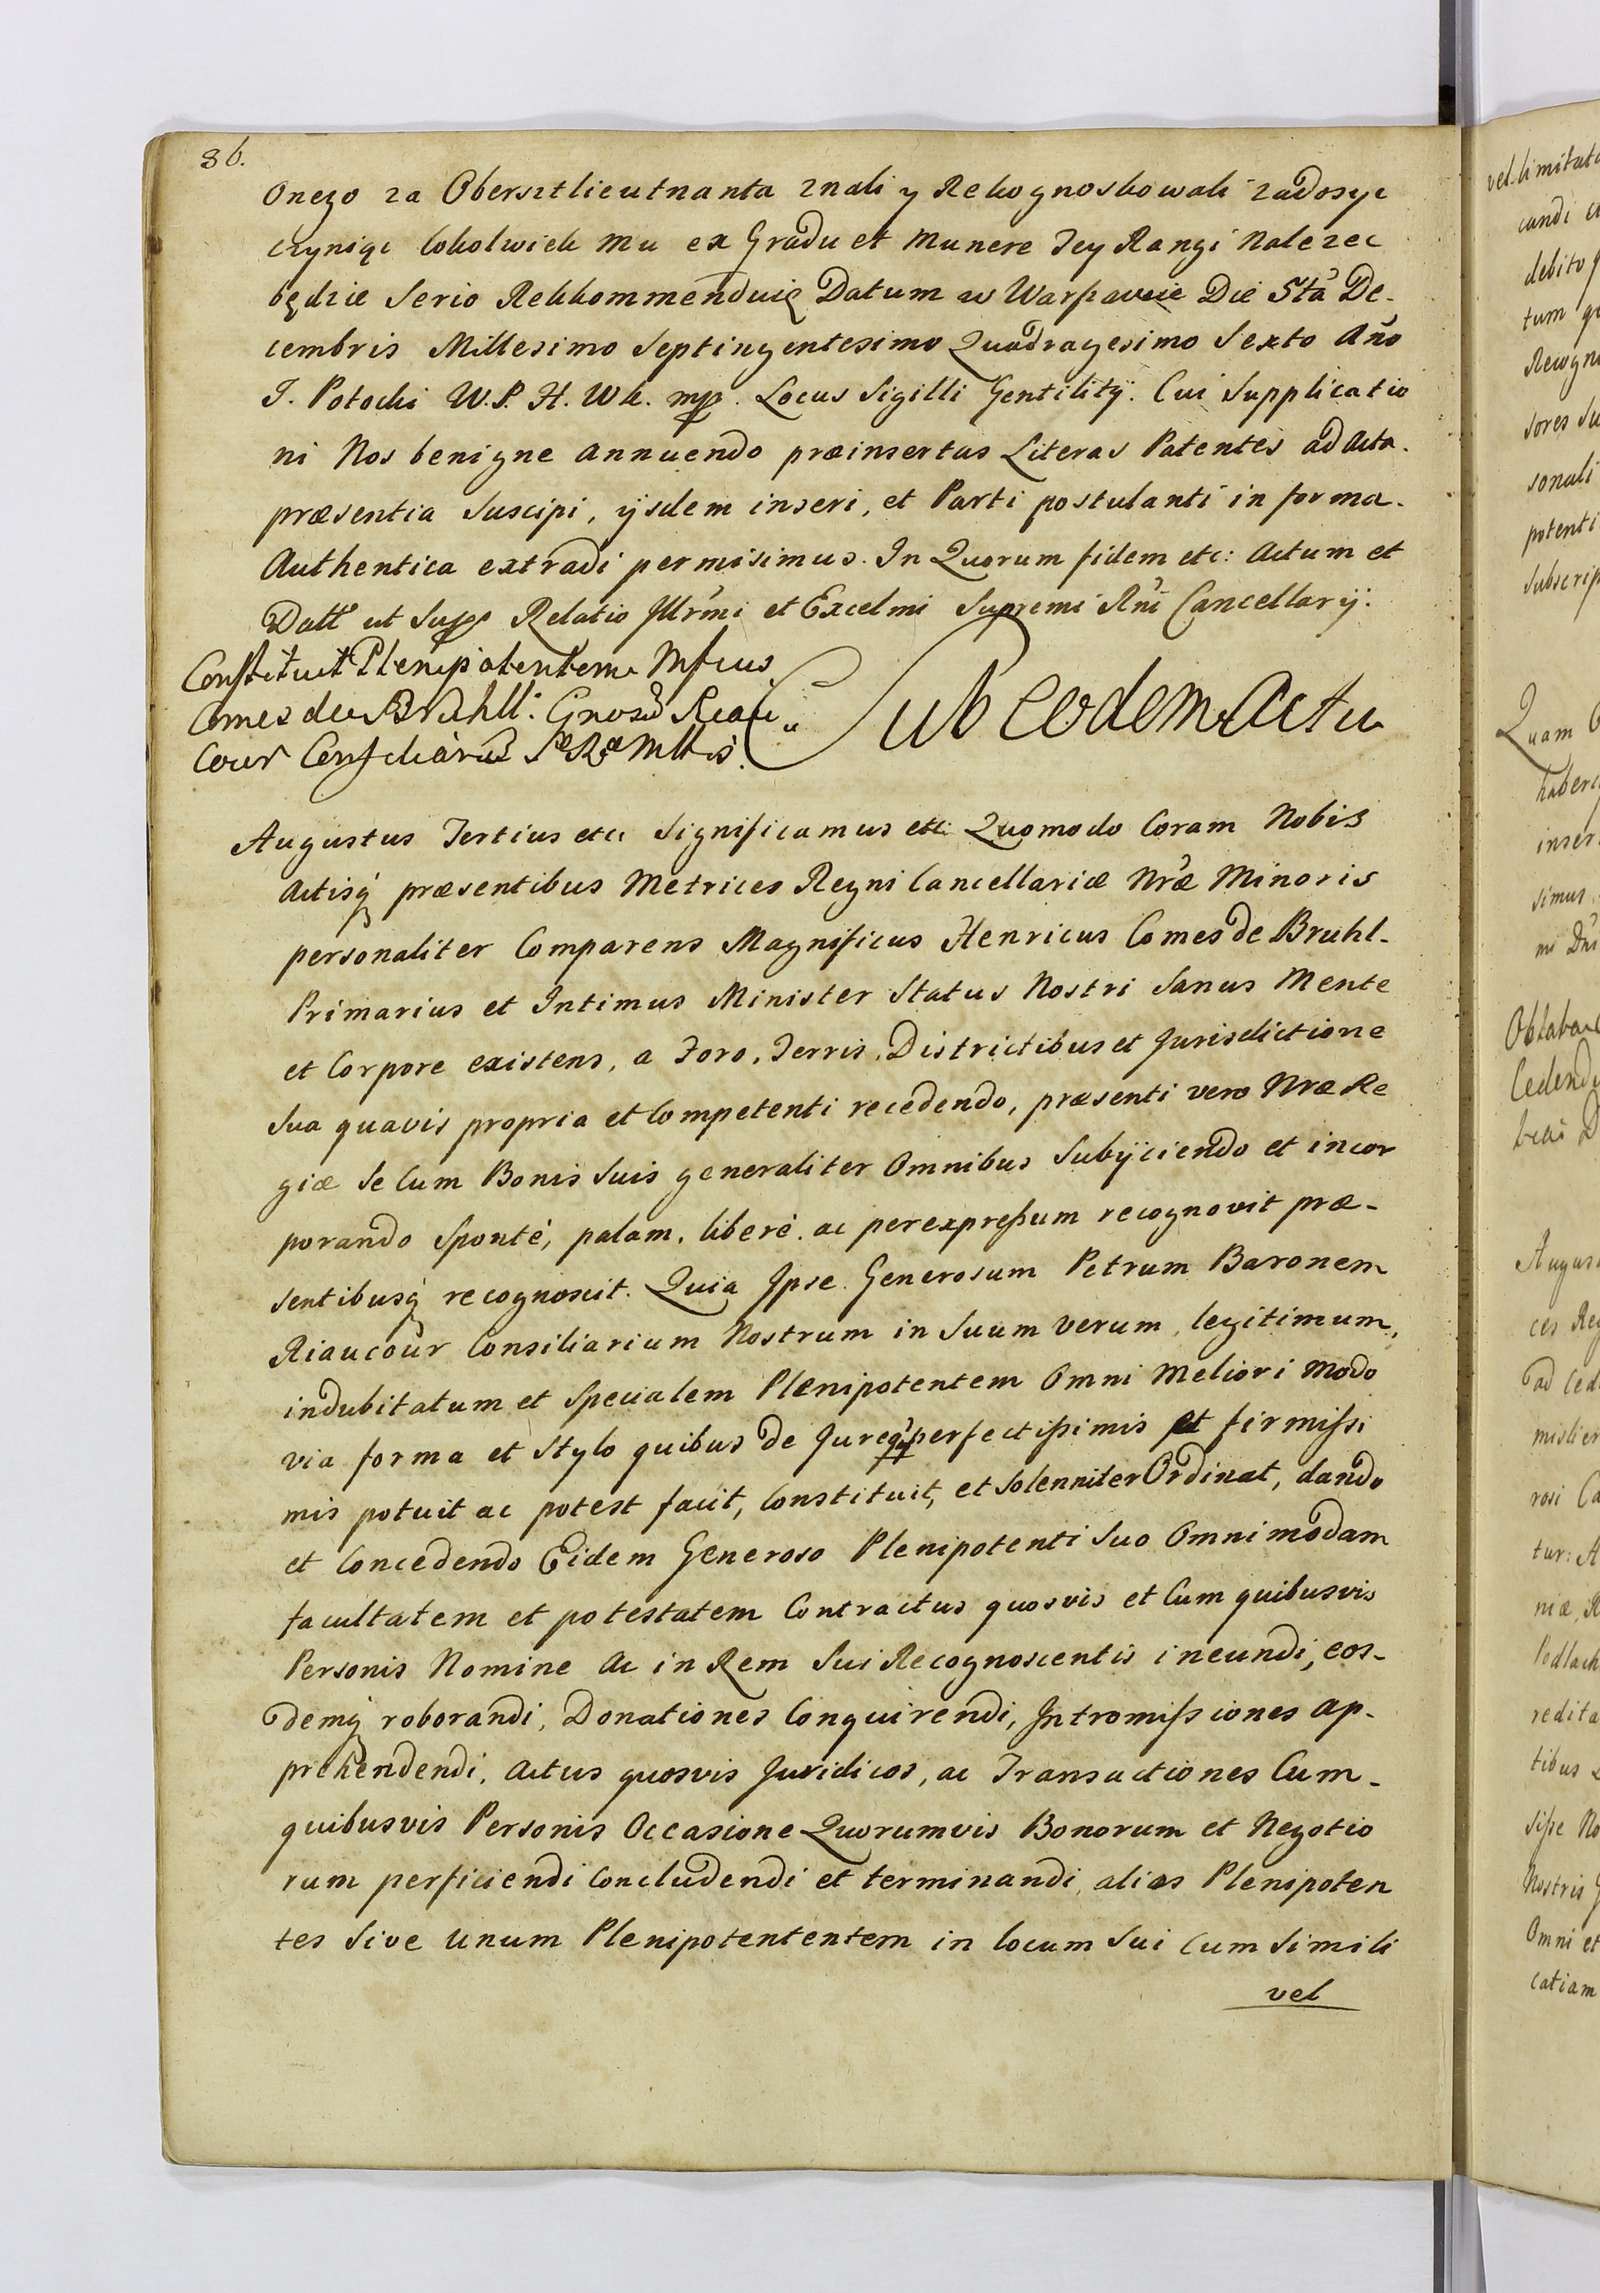 36.
Onego za Obersztlieutnanta znali y Rekognoskowali zadosyc
czyniąc Cokolwiek mu ex Gradu et munere Jey Rangi Nalezec
będzie Serio Rekkommenduię Datum w Warszawie Die 5ta De-
cembris Millesimo Septingentesimo Quadragesimo Sexto Año
J. Potocki W.P. H. W.k. mp. Locus Sigilli Gentilitÿ. Cui Supplicatio
ni Nos benigne annuendo præinsertas Literas Patentes ad Acta
præsentia Suscipi, ÿsdem inseri, et Parti postulanti in forma
Authentica extradi permisimus. In Quorum fidem etc: Actum et
Datt ut Supp Relatio Illrmi et Excelmi Supremi Rni Cancellarÿ.
Constituit Plenipotentem Mfcus
Comes de Brühll: Gnosũ Riau
Cour Consiliariũ
Sub eodem Actu
Augustus Tertius etc: Significamus etc: Quomodo Coram Nobis
Actisq præsentibus Metrices Regni Cancellariæ Nræ Minoris
personaliter Comparens Magnificus Henricus Comes de Bruhl
Primarius et Intimus Minister Status Nostri Sanus Mente
et Corpore existens, a Foro, Terris, Districtibus et Jurisdictione
Sua quavis propria et Competenti recedendo, præsenti vero Nræ Re
giæ Se Cum Bonis Suis generaliter Omnibus Subÿciendo et incor
porando Sponté, palam, liberé, ac perexpressum recognovit præ-
sentibusq recognoscit. Quia Ipse Generosum Petrum Baronem
Riaucour Consiliarium Nostrum in Suum verum, legitimum,
indubitatum et Specialem Plenipotentem Omni Meliori Modo
via forma et Stylo quibus de Jureq perfectissimis et firmissi
mis potuit ac potest facit, Constituit, et Solenniter Ordinat, dando
et Concedendo Eidem Generoso Plenipotenti Suo Omnimodam
facultatem et potestatem Contractus quosvis et Cum quibusvis
Personis Nomine Ac in Rem Sui Recognoscentis ineundi, eos-
demq roborandi, Donationes Conquirendi, Intromissiones ap-
prehendendi, Actus quosvis Juridicos, ac Transactiones Cum
quibusvis Personis Occasione Quorumvis Bonorum et Negotio
rum perficiendi Concludendi et terminandi, alios Plenipoten
tes Sive Unum Plenipotententem in locum Sui Cum Simili
vel
vel limitata
candi
debito
tum
sores
sonali
potenti
Quam
inser
simus
ni Dni
ad Ced
rosi
tur: A
niæ,
redita
tibus
Nostris
Omni et
catiam